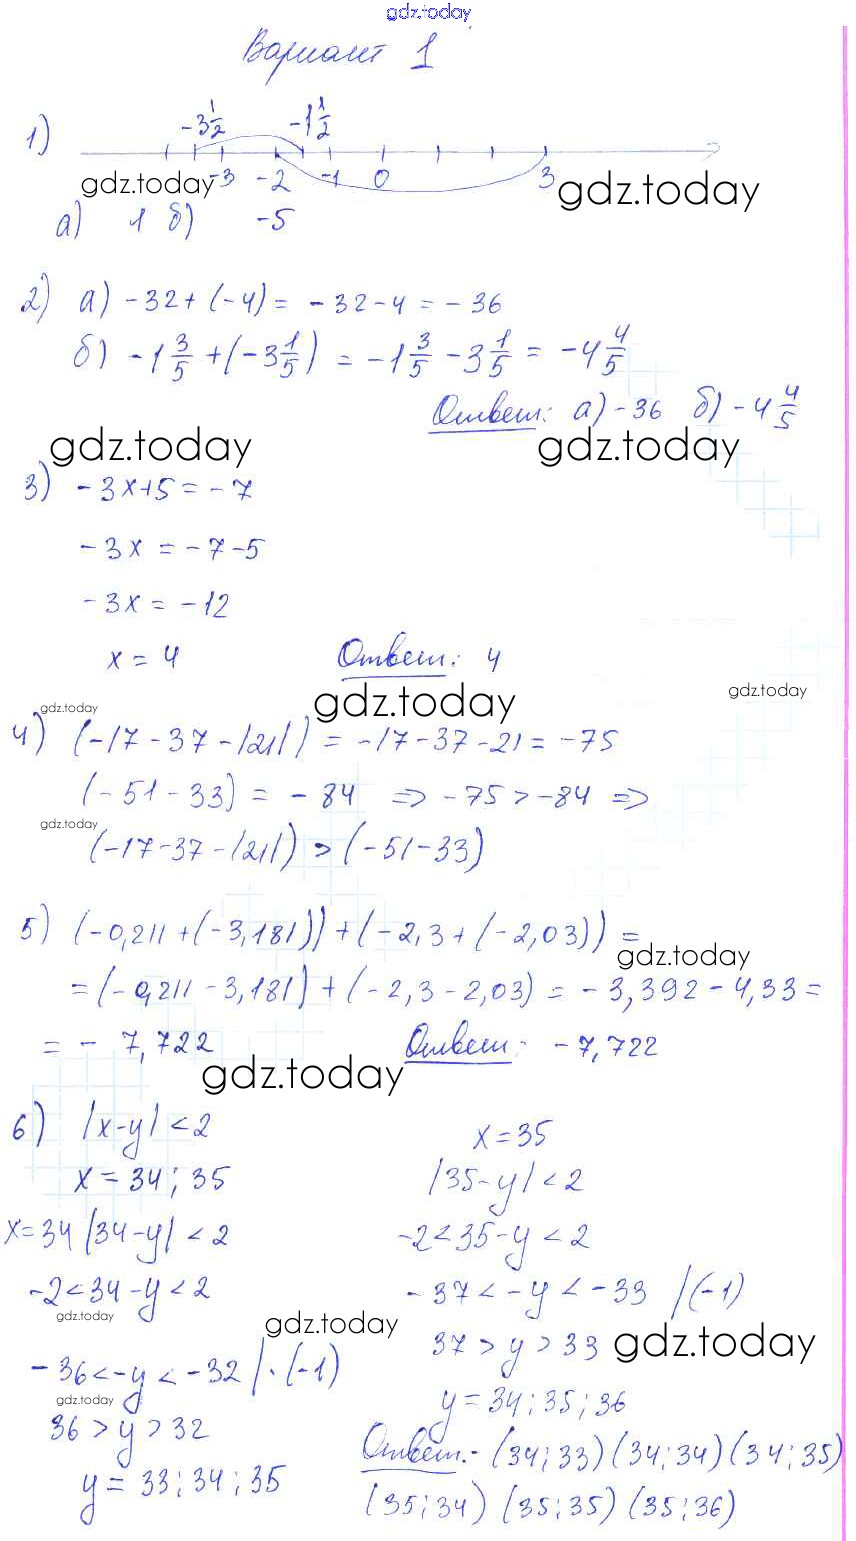 gdz.today
Вариант 1
1) -3 1/2 -1 1/2
gdz.today -3 -2 -1 0 3 gdz.today
а) 1 б) -5
2) а) -32 + (-4) = -32 - 4 = -36
б) -1 3/5 + (-3 1/5) = -1 3/5 - 3 1/5 = -4 4/5
Ответ: а) -36 б) -4 4/5
gdz.today gdz.today
3) -3x+5 = -7
-3x = -7-5
-3x = -12
x = 4 Ответ: 4
gdz.today gdz.today gdz.today
4) (-17-37-|21|) = -17-37-21 = -75
(-51-33) = -84 => -75 > -84 =>
gdz.today
(-17-37-|21|) > (-51-33)
5) (-0,211 + (-3,181)) + (-2,3 + (-2,03)) =
gdz.today
= (-0,211 - 3,181) + (-2,3 - 2,03) = -3,392 - 4,33 =
= - 7,722 Ответ: -7,722
gdz.today
6) |x-y| < 2
x = 34; 35
x=34 |34-y| < 2
-2 < 34-y < 2
gdz.today
gdz.today
-36 < -y < -32 | · (-1)
gdz.today
36 > y > 32
y = 33; 34; 35
x = 35
|35-y| < 2
-2 < 35-y < 2
-37 < -y < -33 |(-1)
37 > y > 33 gdz.today
y = 34; 35; 36
Ответ: (34; 33) (34; 34) (34; 35)
(35; 34) (35; 35) (35; 36)